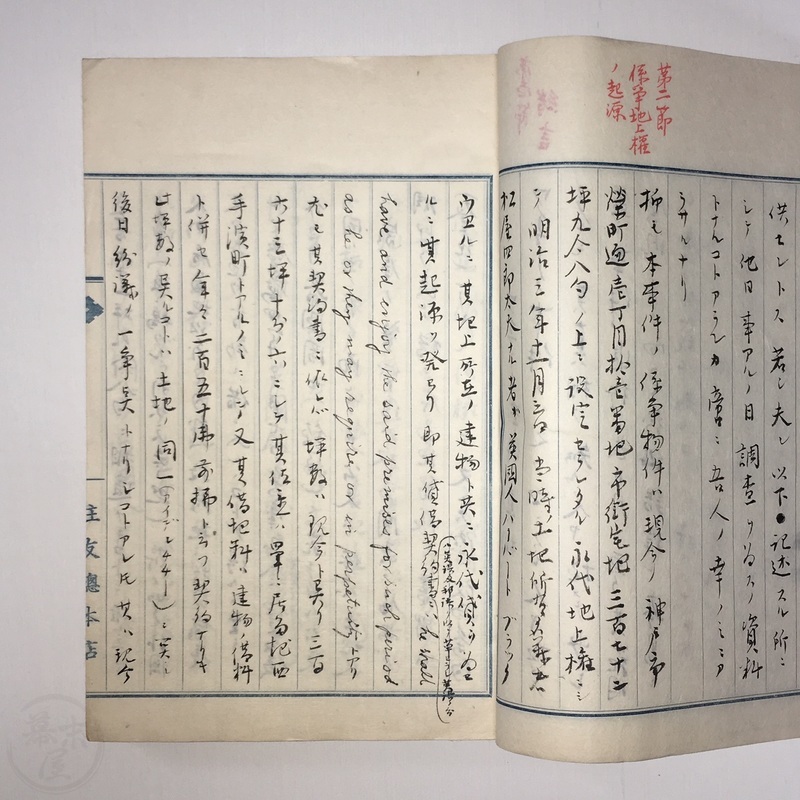 第二節
係争地上権
ノ起源
供セントス若シ夫レ以下記述スル所ニ
シテ他日事アルノ日調査ヲ為スノ資料
トナルコトアランカ啻ニ吾人ノ幸ノミニア
ラサルナリ
抑モ本事件ノ係争物件ハ現今ノ神戸市
榮町通壱丁目拾壱番地市街宅地三百七十二
坪九合八勺ノ上ニ設定セラレタル永代地上権ニシ
テ明治三年十一月三日當時ノ土地所有名義者
松屋四郎太夫ナル者ガ英國人ハーバート ブラック
ウヱルニ其地上所在ノ建物ト共ニ永代貸ヲ為シ
ルニ其起源ヲ発セリ即其貸借契約書ニハ he shall
have and enjoy the said premises for such period
as he or they may require or in perpetuity トアリ
尤モ其契約書ニ依レハ坪数ハ現今ト異リ三百
六十三坪十分ノ六ニシテ其位置ハ單ニ居留地西
手濱町トアルノミニシテ又其借地料ハ建物ノ借料
ト併セ年々二百五十弗前拂ト云フ契約ナリキ
此坪数ノ異ルコトハ土地ノ同一(アイデンチチー)ニ関シ
後日紛議ノ一争点トナリシコトアレ共其ハ現今
住友總本店